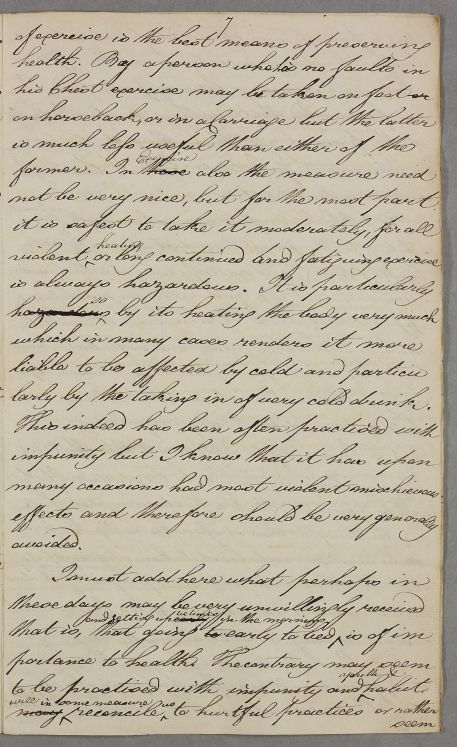 7
of exercise is the best means of preserving
health. By a person who has no faults in
his Chest exercise may be taken on foot or
on horseback, or in a Carriage but the latter
is much less useful than either of the
former. In Exercise also the measure need
not be very nice, but for the most part
it is safest to take it moderately, for all
violent, heating or long continued and fatiguing exercise
is always hazardous. It is particularly
hazardous so by its heating the body very much
which in many cases renders it more
liable to be affected by cold and particu
larly by the taking in of very cold drink.
This indeed has been often practised with
impunity but I know that it has upon
many occasions had most violent mischievous
effects and therefore should be very generally
avoided.
I must add here what perhaps in
these days may be very unwillingly received
and getting up betimes in the morning
that is, that going to early to bed is of im
portance to health. The contrary may seem
to be practised with impunity and youth & habit
will in some measure
may reconcile us to hurtful practices or rather
seem